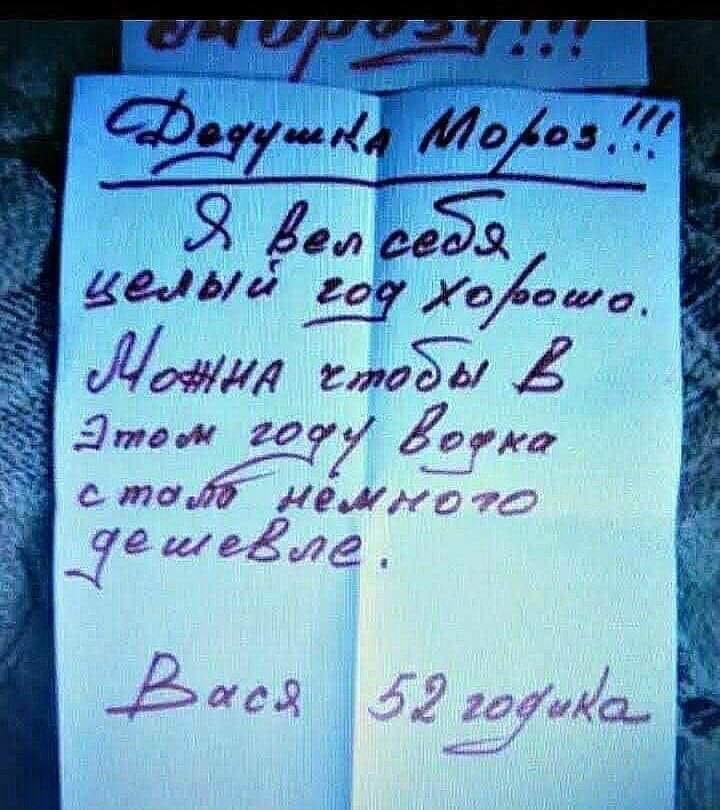 Морозу!!!
Дедушка Мороз!!!
Я вел себя
целый год хорошо.
Можна чтобы в
этом году водка
стало немного
дешевле.
Вася 52 годика